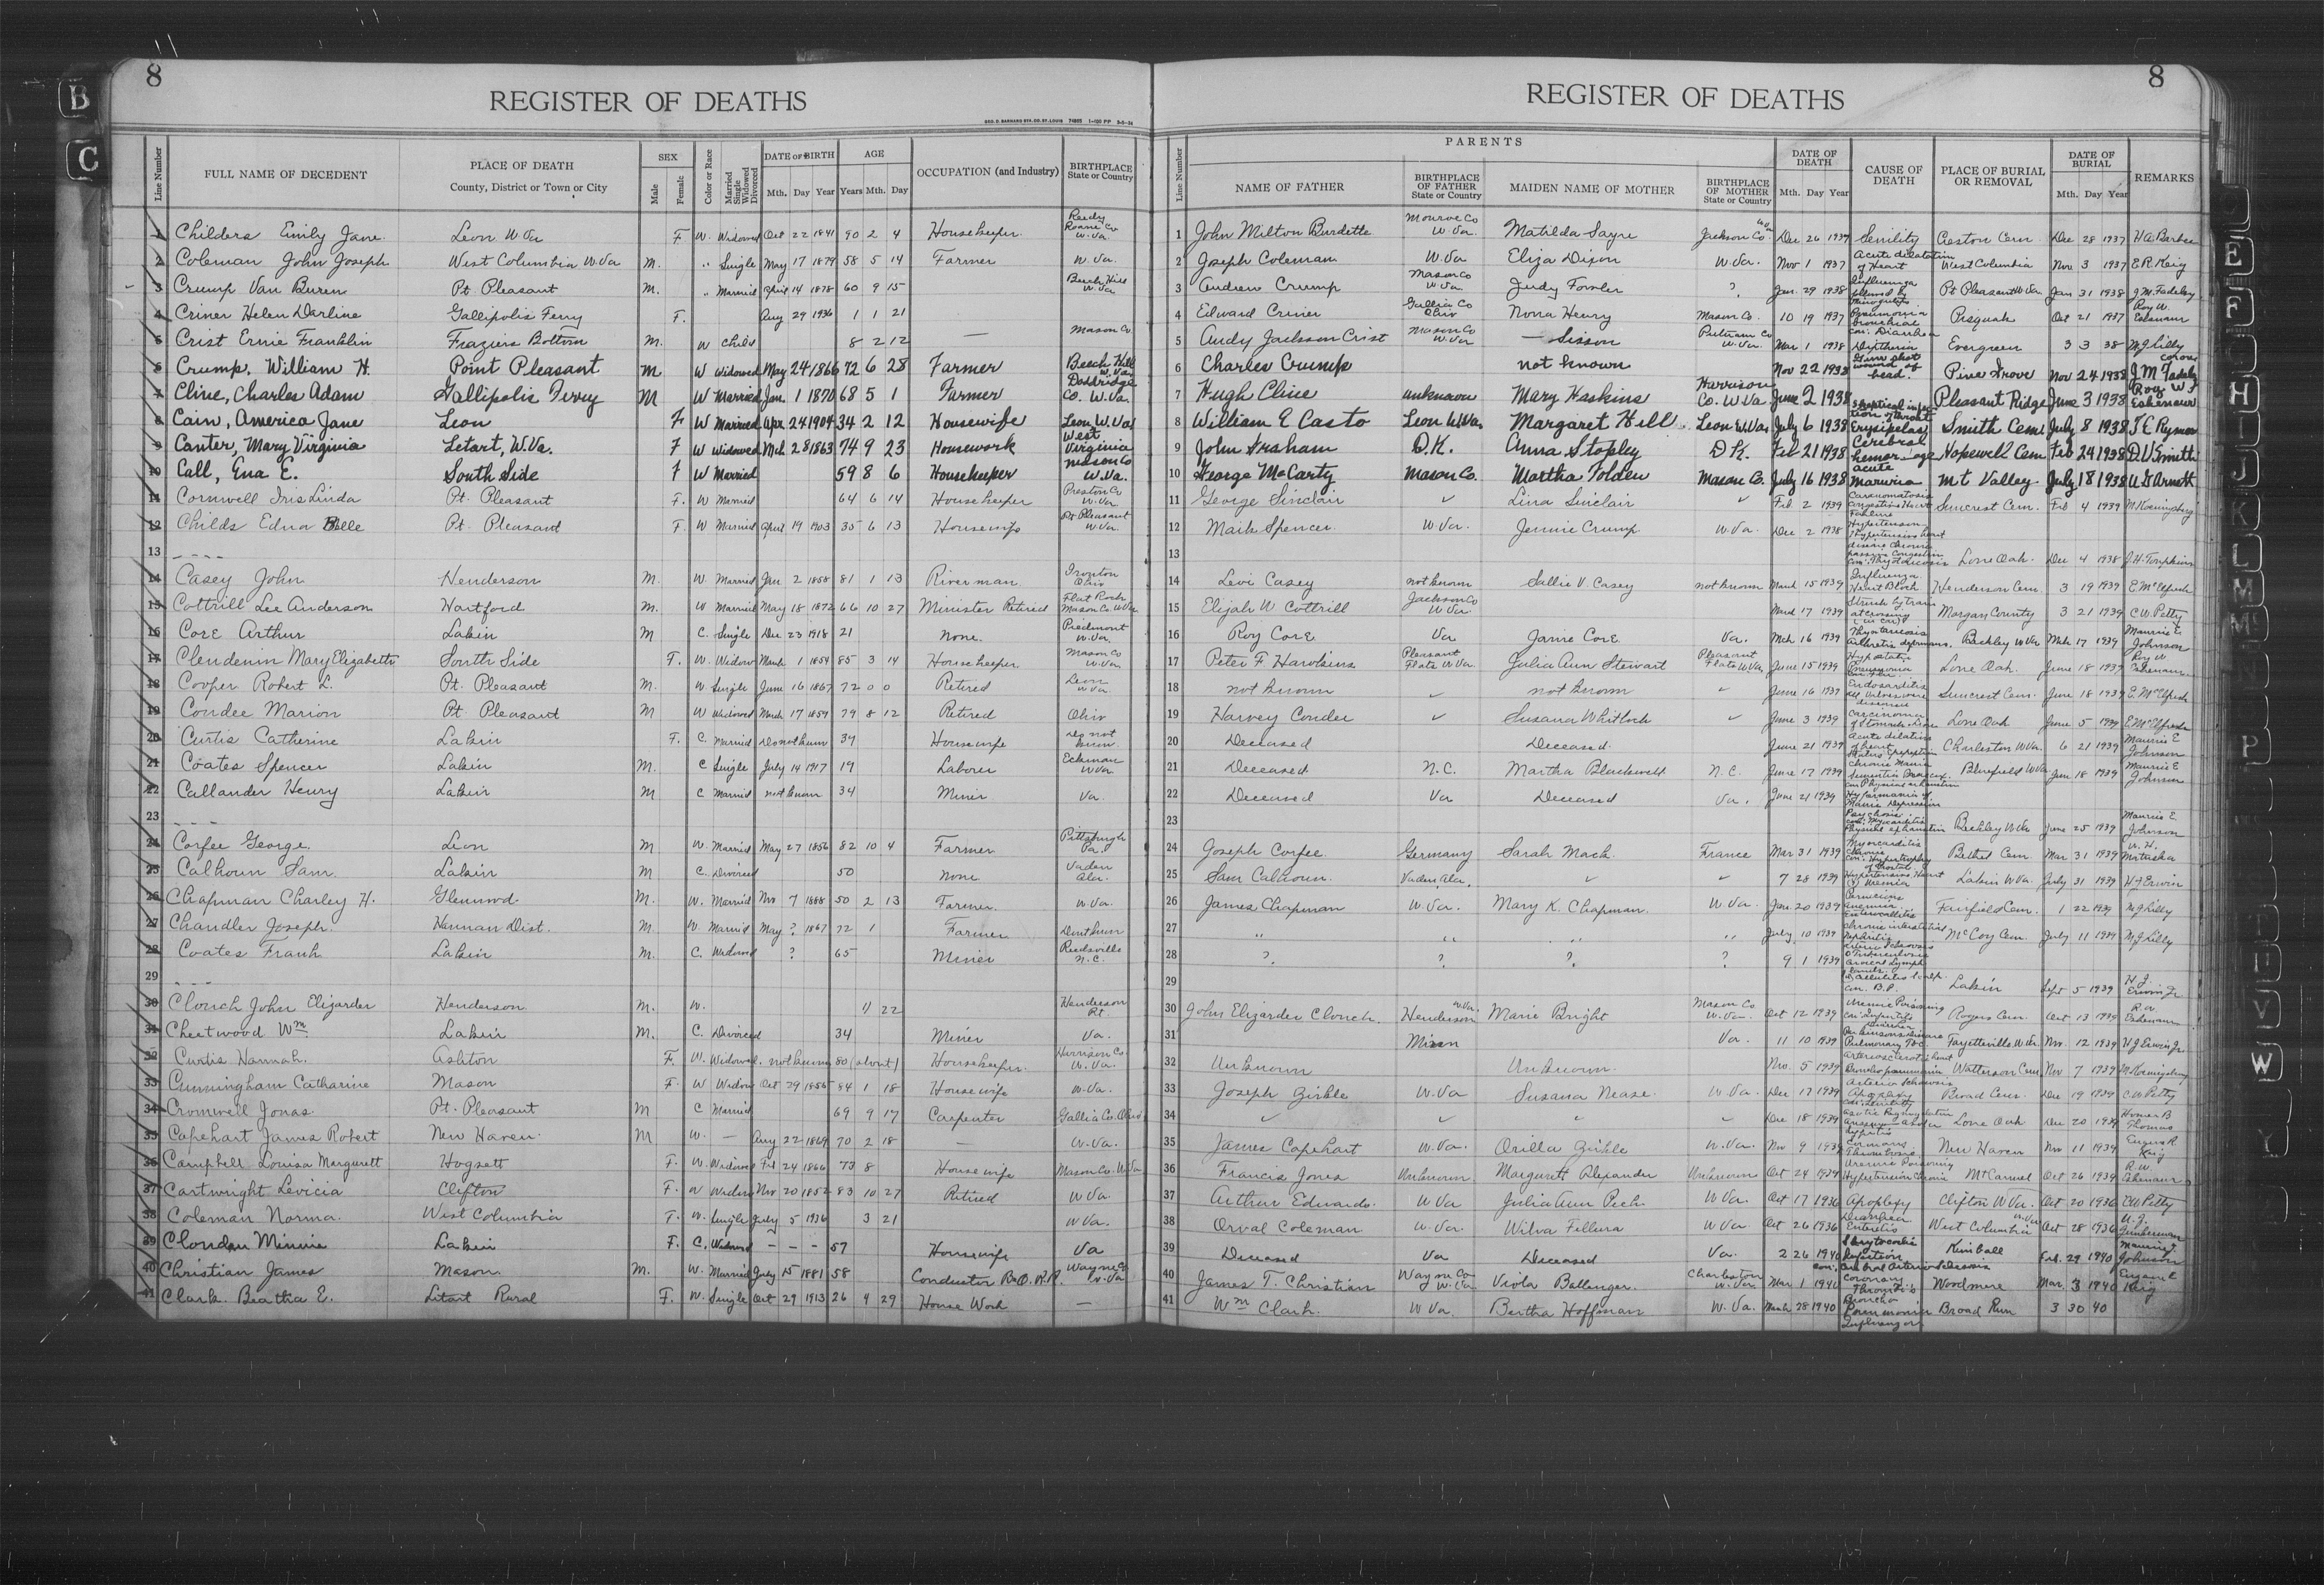 8
REGISTER OF DEATHS
GEO. D. BARNARD STA. CO. ST. LOUIS
Line Number | FULL NAME OF DECEDENT | PLACE OF DEATH County, District or Town or City | SEX Male Female | Color or Race | Married Single Widowed Divorced | DATE OF BIRTH Mth. Day Year | AGE Years Mth. Day | OCCUPATION (and Industry) | BIRTHPLACE State or Country
1 Childers Emily Jane Leon W Va F W. Widowed Oct 22 1841 90 2 4 Housekeeper Reedy Roane Co W. Va.
2 Coleman John Joseph West Columbia W. Va M. " Single May 17 1879 58 5 14 Farmer W. Va.
3 Crump Van Buren Pt Pleasant M. " Married April 14 1878 60 9 15 Beech Hill W. Va
4 Criner Helen Darline Gallipolis Ferry F. Aug 29 1936 1 1 21
5 Crist Ernie Franklin Fraziers Bottom M. W Child 8 2 12 — Mason Co
6 Crump, William H. Point Pleasant M W Widowed May 24 1866 72 6 28 Farmer Beech Hill W. Va
7 Cline, Charles Adam Gallipolis Ferry M W Married Jan 1 1870 68 5 1 Farmer Doddridge Co. W. Va.
8 Cain, America Jane Leon F W Married Apr 24 1904 34 2 12 Housewife Leon, W. Va
9 Canter, Mary Virginia Letart, W. Va. F W Widowed Mch 28 1863 74 9 23 Housework West Virginia
10 Call, Ena E. South Side F W Married 59 8 6 Housekeeper Mason Co W. Va.
11 Cornwell Iris Linda Pt. Pleasant F. W Married 64 6 14 Housekeeper Preston Co W. Va.
12 Childs Edna Belle Pt. Pleasant F W Married April 19 1903 35 6 13 Housewife Pt Pleasant W. Va.
13 - - - -
14 Casey John Henderson M. W. Married Jan 2 1858 81 1 13 River man Ironton Ohio
15 Cottrill Lee Anderson Hartford M. W Married May 18 1872 66 10 27 Minister Retired Flat Rock Mason Co W Va
16 Core Arthur Lakin M C. Single Dec 23 1918 21 None. Piedmont W. Va.
17 Clendenin Mary Elizabeth South Side F. W. Widow March 1 1854 85 3 14 Housekeeper Mason Co W. Va.
18 Cooper Robert L. Pt. Pleasant M. W Single June 16 1867 72 0 0 Retired Leon W Va
19 Condee Marion Pt. Pleasant M W Widowed March 17 1859 79 8 12 Retired Ohio
20 Curtis Catherine Lakin F. C. Married Do not know 34 Housewife Do not know
21 Coates Spencer Lakin M. C Single July 14 1917 19 Laborer Eckman W Va.
22 Callander Henry Lakin M C Married not known 34 Miner Va.
23 - - -
24 Corfee George. Leon M W. Married May 27 1856 82 10 4 Farmer Pittsburgh Pa.
25 Calhoun Sam. Lakin M C. Divorced 50 None Vaden Ala.
26 Chapman Charley H. Glenwood. M. W. Married Nov 7 1888 50 2 13 Farmer. W. Va.
27 Chandler Joseph. Hannan Dist. M W. Married May ? 1867 72 1 Farmer
28 Coates Frank Lakin M. C. Widowed ? 65 Miner Reedsville N. C.
29 - - -
30 Clonch John Elizarder Henderson M. W. 11 22 Henderson Rt.
31 Cheetwood Wm Lakin M. C. Divorced 34 Miner Va.
32 Curtis Hannah. Ashton F. W. Widowed not known 80 (about) Housekeeper. Harrison Co. W. Va.
33 Cunningham Catharine Mason F. W Widow Oct 29 1855 84 1 18 Housewife W. Va.
34 Cromwell Jonas. Pt. Pleasant M C Married 69 9 17 Carpenter Gallia Co. Ohio
35 Capehart James Robert New Haven. M W. — Aug 22 1869 70 2 18 — W. Va.
36 Campbell Louisa Margarett Hogsett F. W. Widowed Feb 24 1866 73 8 Housewife Mason Co. W. Va
37 Cartwright Levicia Clifton F. W Widow Nov 20 1852 83 10 27 Retired W Va.
38 Coleman Norma. West Columbia F. W. Single July 5 1936 3 21 W Va.
39 Minnie Lakin F. C. Widowed - - - 57 Housewife Va
40 Christian James Mason. M. W. Married July 15 1881 58 Conductor B.&O. R.R. Wayne Co W. Va
41 Clark. Beatha E. Litart Rural F. W. Single Oct 29 1913 26 4 29 House Work —
8
REGISTER OF DEATHS
Line Number | PARENTS | NAME OF FATHER | BIRTHPLACE OF FATHER State or Country | MAIDEN NAME OF MOTHER | BIRTHPLACE OF MOTHER State or Country | DATE OF DEATH Mth. Day Year | CAUSE OF DEATH | PLACE OF BURIAL OR REMOVAL | DATE OF BURIAL Mth. Day Year | REMARKS
1 John Milton Burdette Monroe Co W. Va. Matilda Sayre Jackson Co Dec 26 1937 Senility Creston Cem Dec 28 1937 H A Barbee
2 Joseph Coleman W. Va Eliza Dixon W. Va. Nov 1 1937 Acute dilatation of Heart West Columbia Nov 3 1937 E. R. Keig
3 Andrew Crump Mason Co W. Va. Judy Fowler ? Jan. 29 1938 Influenza followed by Pt Pleasant W Va Jan 31 1938 J. M. Fadeley
4 Edward Criner Gallia Co Ohio Nona Henry Mason Co. 10 19 1937 Pneumonia bronchial con. Diarrhea Pisquah Oct 21 1937 Roy W. Eshenaur
5 Andy Jackson Crist Mason Co W. Va — Sisson Putnam Co W. Va. Mar 1 1938 Diptheria Evergreen 3 3 38 M J Lilly
6 Charles Crump not known Nov 22 1938 Gun shot wound of head. Pine Grove Nov 24 1938 J. M. Fadeley coroner
7 Hugh Cline unknown Mary Haskins Harrison Co. W Va June 2 1938 Pleasant Ridge June 3 1938 Roy W. Eshenaur
8 William E Casto Leon W. Va. Margaret Hill Leon W. Va July 6 1938 Erysipelas Smith Cem July 8 1938
9 John Graham D. K. Anna Stopley D K. Feb 21 1938 Cerebral hemorrage Hopewell Cem Feb 24 1938 D. V. Smith
10 George McCarty Mason Co. Martha Folden Mason Co. July 16 1938 acute Mt Valley July 18 1938 U. G Arnott
11 George Sinclair ✓ Lina Sinclair ✓ Feb 2 1939 Carcinomatosis Congestive Heart Failure Suncrest Cem. Feb 4 1939
12 Mark Spencer. W Va. Jennie Crump W Va. Dec 2 1938 Hypertension Hypertensive heart disease chronic passive congestion
13 Lone Oak. Dec 4 1938 J. H. Tompkins
14 Levi Casey not known Sallie V. Casey not known March 15 1939 Influenza Heart Block Henderson Cem. 3 19 1939 E. McElfresh
15 Elijah W Cottrill Jackson Co W Va. March 17 1939 Struck by train at crossing (in car) Morgan County 3 21 1939 C. W. Petty
16 Roy Core Va Janie Core Va. Mch 16 1939 Beckley W Va Mch 17 1939 Maurice E Johnson
17 Peter F. Hawkins Pleasant Flats W Va. Julia Ann Stewart Pleasant Flats W Va June 15 1939 Hypostatic Pneumonia Lone Oak. June 18 1939 Roy W Eshenaur
18 not known ✓ not known " June 16 1939 Endocarditis Suncrest Cem. June 18 1939 E. McElfresh
19 Harvey Conder ✓ Susana Whitlock ✓ June 3 1939 Carcinoma of Stomach Lone Oak June 5 1939 E McElfresh
20 Deceased Deceased. June 21 1939 Acute dilation of heart Charleston W Va. 6 21 1939 Maurice E Johnson
21 Deceased N. C. Martha Blackwell N. C. June 17 1939 Bluefield W Va June 18 1939 Maurice E Johnson
22 Deceased Va Deceased Va. June 21 1939
23 Physical exhaustion Beckley W Va June 25 1939 Maurice E. Johnson
24 Joseph Corfee Germany Sarah Mack France Mar 31 1939 Myocarditis Chronic con. Hypertrophy of Prostate Bethel Cem Mar 31 1939
25 Sam Calhoun. Vaden, Ala. ✓ ✓ 7 28 1939 Hypertensive Heart Uremia Lakin W. Va. July 31 1939 H J Erwin
26 James Chapman W. Va. Mary K. Chapman. W Va. Jan. 20 1939 Pernicious Anemia Fairfield Cem. 1 22 1939 M J Lilly
27 " " " " July 10 1939 Chronic interstitial Nephritis McCoy Cem. July 11 1939 M. J. Lilly
28 ? ? ? ? 9 1 1939 Tuberculosis
29 Lakin Sept 5 1939 H J Erwin Jr
30 John Elizarder Clonch. Henderson W. Va. Marie Bright Mason Co W. Va. Oct 12 1939 Uremic Poisoning Rogers Cem. Oct 13 1939 R. W Eshenaur
31 Va. 11 10 1939 Pulmonary TBC. Fayetteville W. Va. Nov. 12 1939 H. J Erwin Jr.
32 Unknown Unknown. Nov. 5 1939 Bronchopneumonia Watterson Cem. Nov 7 1939
33 Joseph Zirkle W. Va Susana Nease. W Va. Dec 17 1939 Apoplexy Broad Cem. Dec 19 1939 C. W. Petty
34 ✓ ✓ " ✓ Dec 18 1939 Lone Oak Dec 20 1939 Homer B Thomas
35 James Capehart W. Va. Orilla Zirkle W. Va. Nov 9 1939 Thrombosis New Haven Nov 11 1939
36 Francis Jones Unknown Margarett Alexander Unknown Oct 24 1939 Uremic Poisoning Mt Carmel Oct 26 1939 R. W. Eshenaur
37 Arthur Edwards. W Va Julia Ann Peck W Va. Oct 17 1936 Apoplexy Clifton W Va. Oct 20 1936 C. W. Petty
38 Orval Coleman W. Va. Wilva Fillura W Va Oct 26 1936 Diarrhea Enteretis West Columbia W. Va Oct 28 1936
39 Deceased Va Deceased Va. 2 26 1940 Kimball Feb. 29 1940 Maurice E. Johnson
40 James T. Christian Wayne Co W. Va Viola Ballenger. Charleston W. Va. Mar 1 1940 Coronary Thrombosis Woodmere Mar. 3 1940 Eugene Keig
41 Wm Clark. W Va. Bertha Hoffman W. Va. March 28 1940 Broncho Pneumonia Influenza Broad Run 3 30 40
B
C
E
F
H
I
J
K
L
M
Mc
N
P
V
W
Y